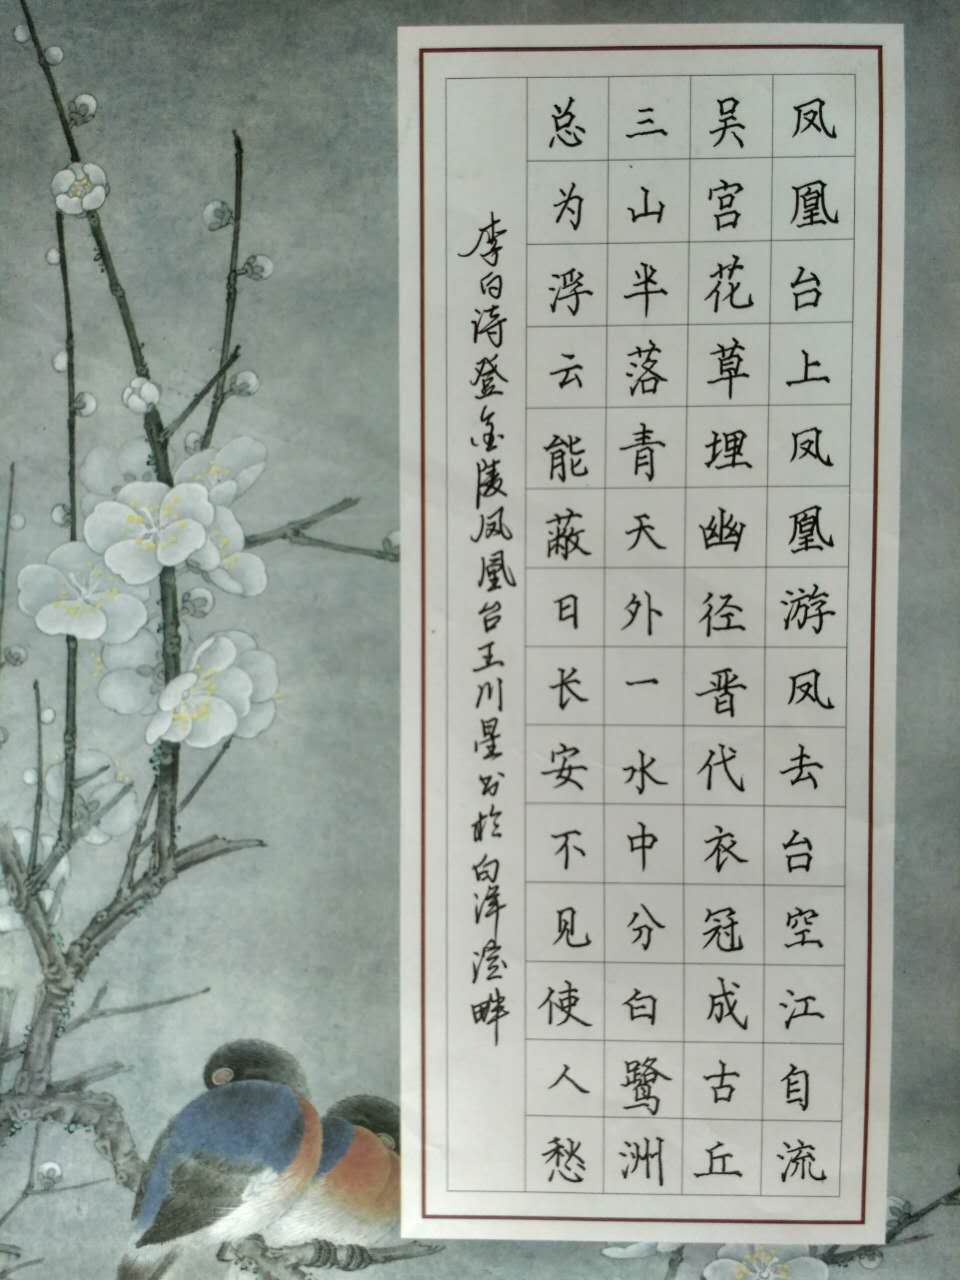 凤凰台上凤凰游凤去台空江自流
吴宫花草埋幽径晋代衣冠成古丘
三山半落青天外一水中分白鹭洲
总为浮云能蔽日长安不见使人愁
李白诗登金陵凤凰台王川星书于白洋淀畔